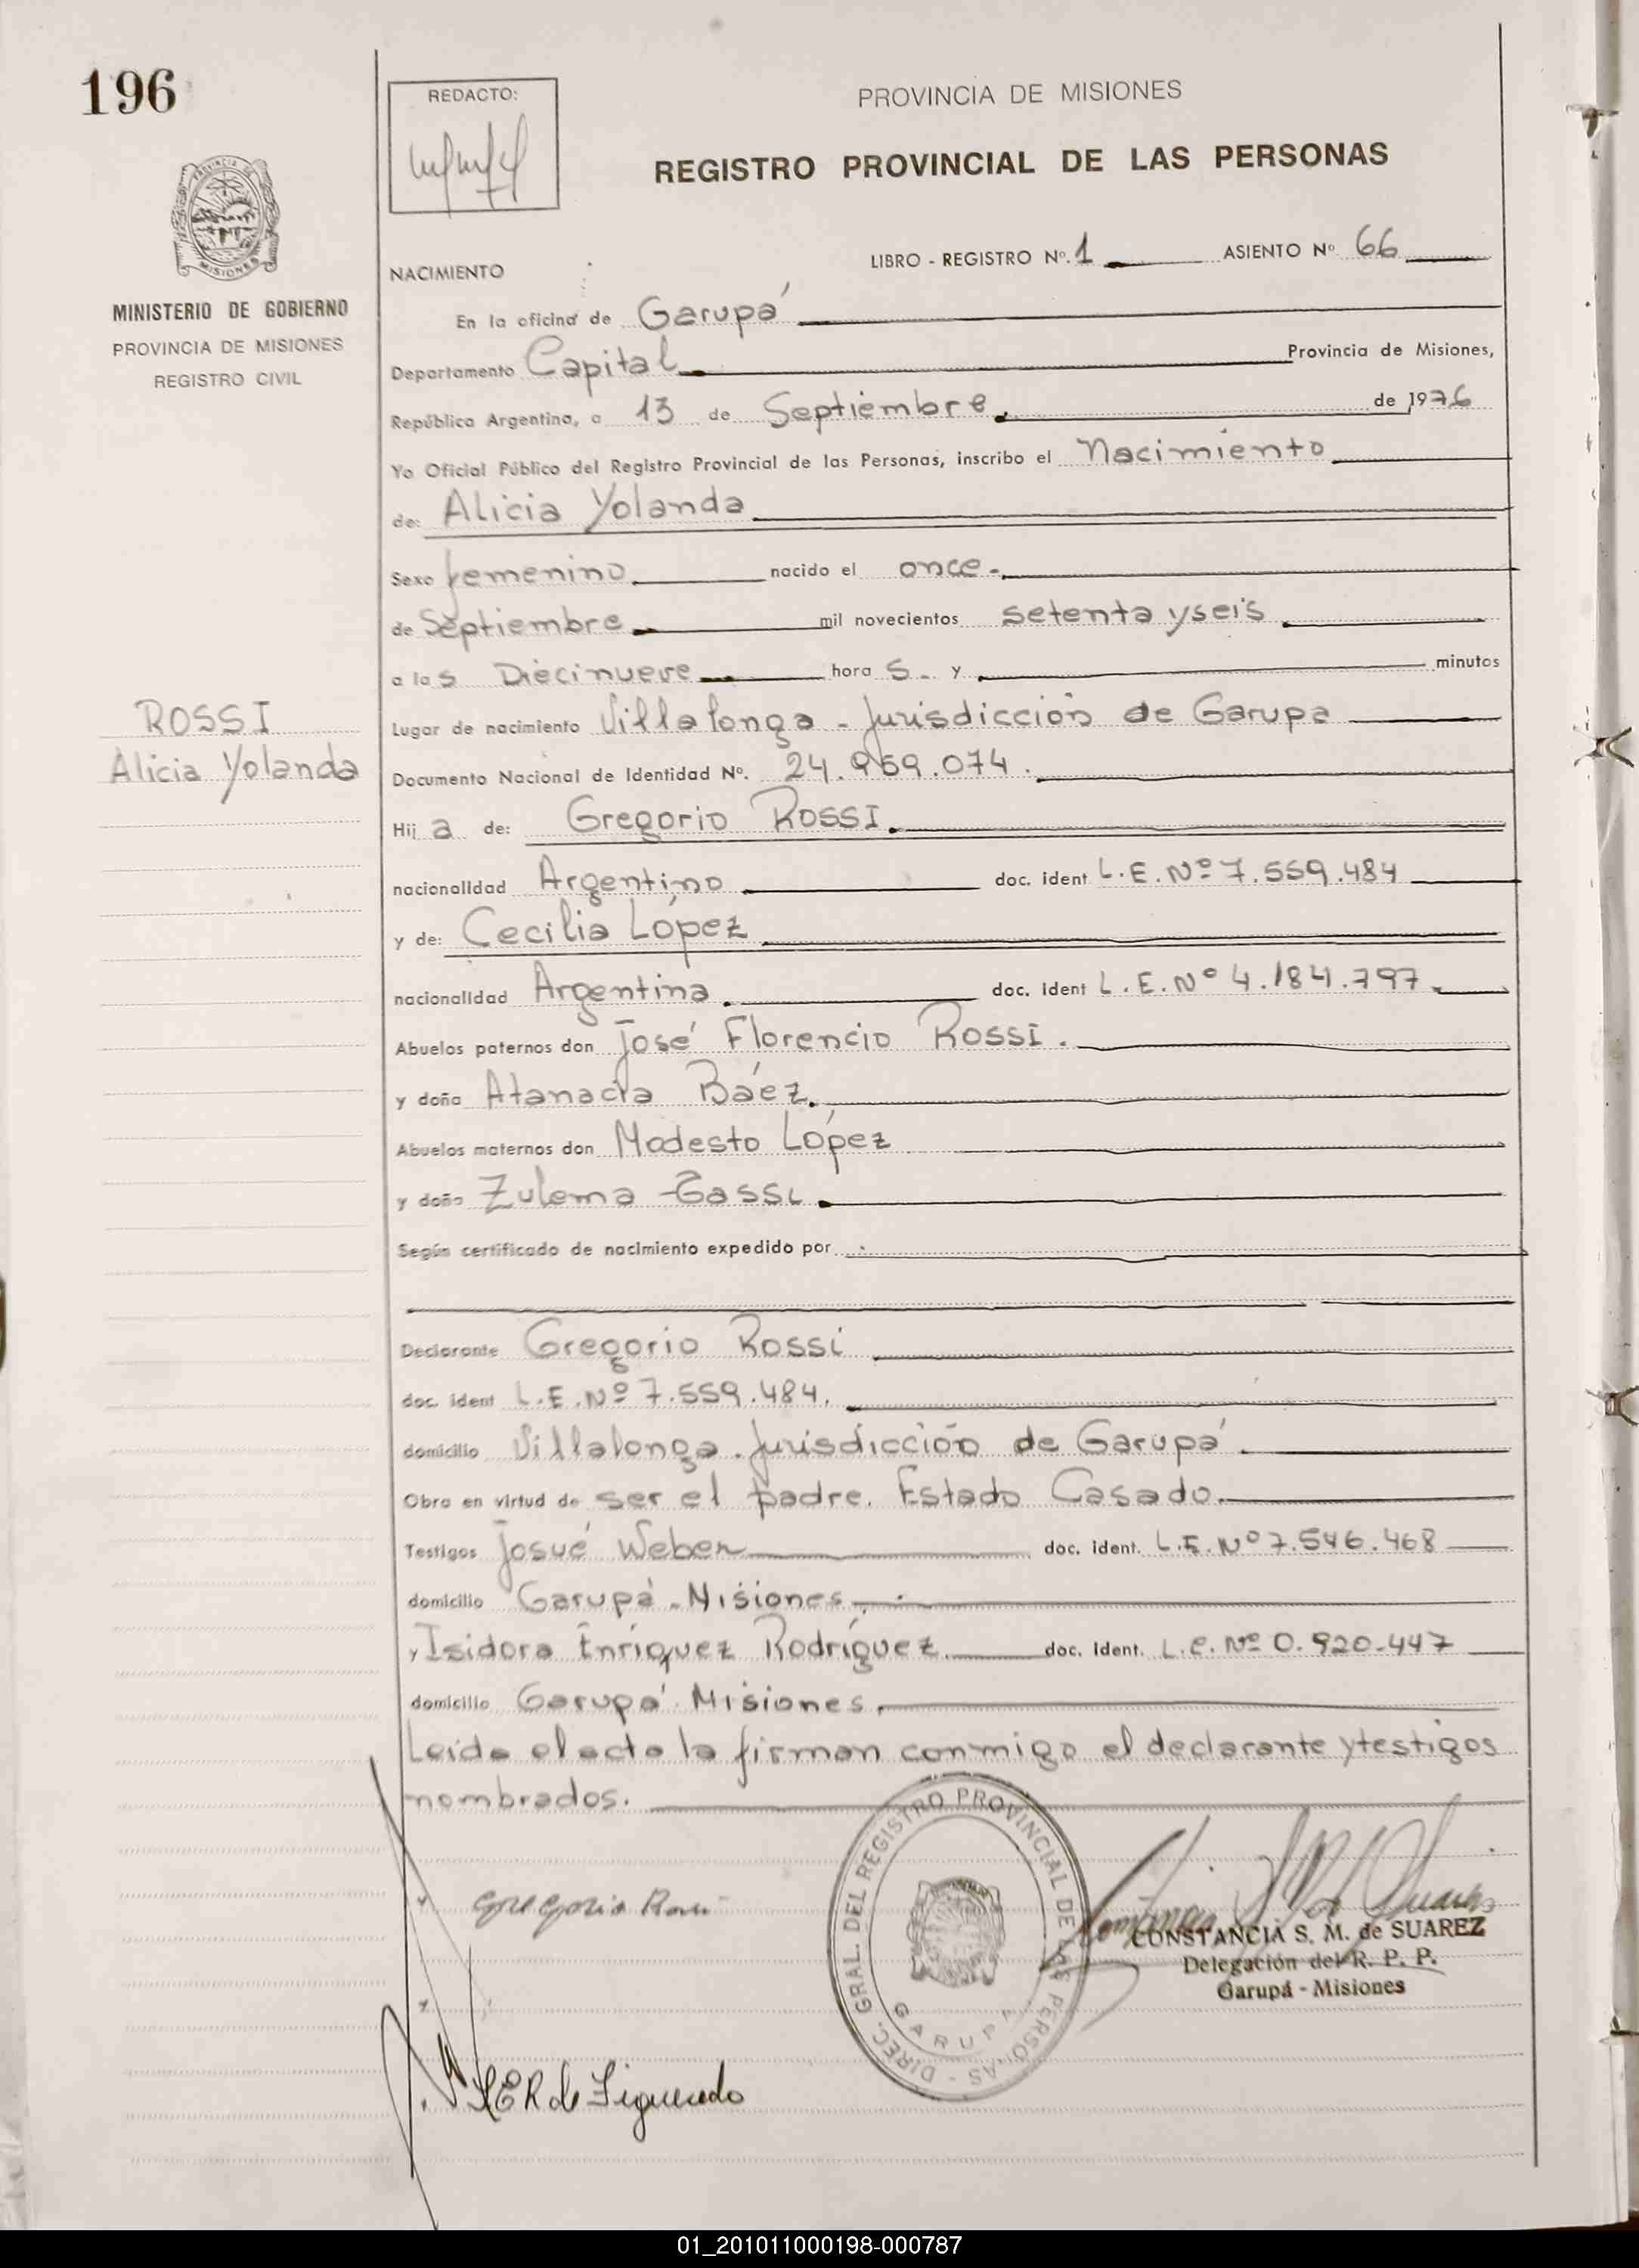 196
REDACTO:
PROVINCIA DE MISIONES
REGISTRO PROVINCIAL DE LAS PERSONAS
LIBRO - REGISTRO Nº. 1 ASIENTO Nº 66
NACIMIENTO
MINISTERIO DE GOBIERNO
PROVINCIA DE MISIONES
REGISTRO CIVIL
En la oficina de Garupá
Departamento Capital Provincia de Misiones,
República Argentina, a 13 de Septiembre. de 1976
Yo Oficial Público del Registro Provincial de las Personas, inscribo el Nacimiento
de: Alicia Yolanda
Sexo femenino nacido el once.
de Septiembre mil novecientos setenta y seis
a las Diecinueve hora s. y minutos
ROSSI
Alicia Yolanda
Lugar de nacimiento Villalonga - Jurisdicción de Garupa
Documento Nacional de Identidad Nº. 24.959.074.
Hij a de: Gregorio ROSSI.
nacionalidad Argentino doc. ident L.E. Nº 7.559.484
y de: Cecilia López
nacionalidad Argentina. doc. ident L.E. Nº 4.184.797
Abuelos paternos don José Florencio Rossi.
y doña Atanacia Báez.
Abuelos maternos don Modesto López
y doña Zulema
Según certificado de nacimiento expedido por
Declarante Gregorio Rossi
doc. ident L.E. Nº 7.559.484.
domicilio Villalonga. Jurisdicción de Garupá.
Obra en virtud de ser el padre. Estado Casado.
Testigos Josué Weber doc. ident. L.E. Nº 7.546.468
domicilio Garupá - Misiones
y Isidora Enríquez Rodríguez doc. ident. L.E. Nº 0.920.447
domicilio Garupá Misiones.
Leída el acta la firman conmigo el declarante y testigos
nombrados.
Gregorio Rossi
DIREC. GRAL. DEL REGISTRO PROVINCIAL DE LAS PERSONAS -
GARUPA
CONSTANCIA S. M. de SUAREZ
Delegación del R. P. P.
Garupá - Misiones
01_201011000198-000787